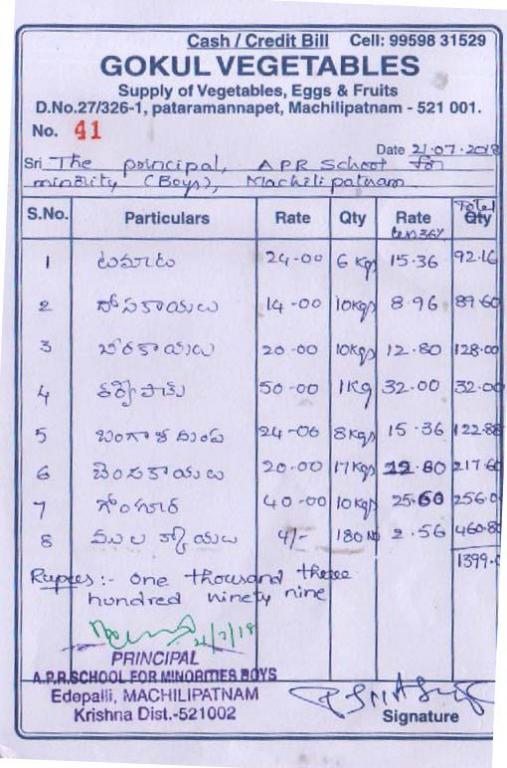 Cash / Credit Bill Cell: 99598 31529
GOKUL VEGETABLES
Supply of Vegetables, Eggs & Fruits
D.No.27/326-1, pataramannapet, Machilipatnam - 521 001.
No. 41
Date 21.07.2018
Sri The principal, APR School for
minority (Boys), Machilipatnam
S.No. Particulars Rate Qty Rate Total Qty
1 టమాట 24-00 6 Kgs 15.36 92.16
2 దోసకాయలు 14-00 10Kgs 8.96 89.60
3 బీరకాయలు 20-00 10Kgs 12.80 128.00
4 50-00 1Kg 32.00 32.00
5 బంగాళదుంప 24-00 8Kgs 15.36 122.88
6 బెండకాయలు 20.00 17Kgs 12.80 217.60
7 గోంగూర 40-00 10Kgs 25.60 256.0
8 ములక్కాయలు 4/- 180 No 2.56 460.80
1399.
Rupees:- one thousand three
hundred ninety nine
21/7/18
PRINCIPAL
A.P.R.SCHOOL FOR MINORITIES BOYS
Edepalli, MACHILIPATNAM
Krishna Dist.-521002
Signature